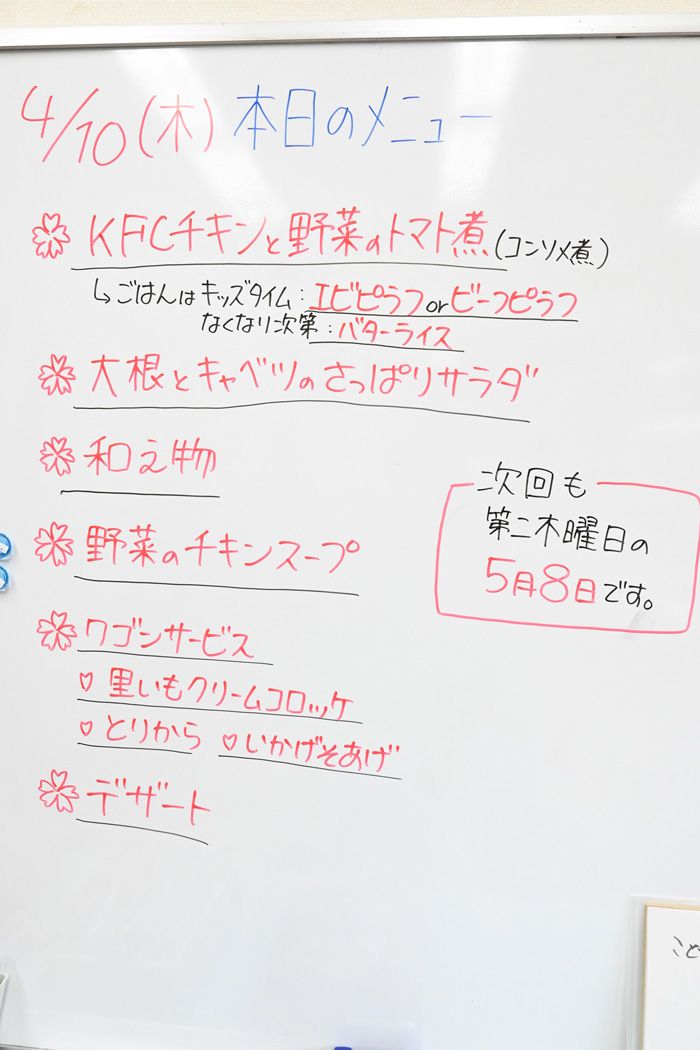 4/10(木) 本日のメニュー
KFCチキンと野菜のトマト煮(コンソメ煮)
↳ごはんはキッズタイム:エビピラフorビーフピラフ
なくなり次第:バターライス
大根とキャベツのさっぱりサラダ
和え物
次回も
第二木曜日の
5月8日です。
野菜のチキンスープ
ワゴンサービス
♡里いもクリームコロッケ
♡とりから ♡いかげそあげ
デザート
こと